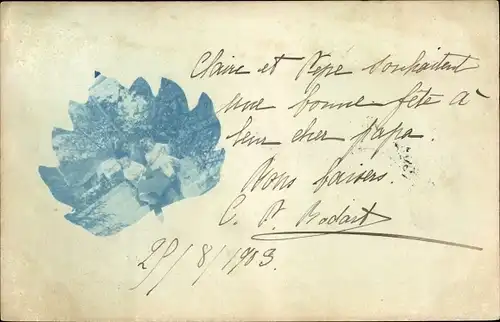 Claire et Pépé souhaitent
une bonne fête à
leur cher papa.
Bons baisers.
C. P. Bodart
/8/1903.